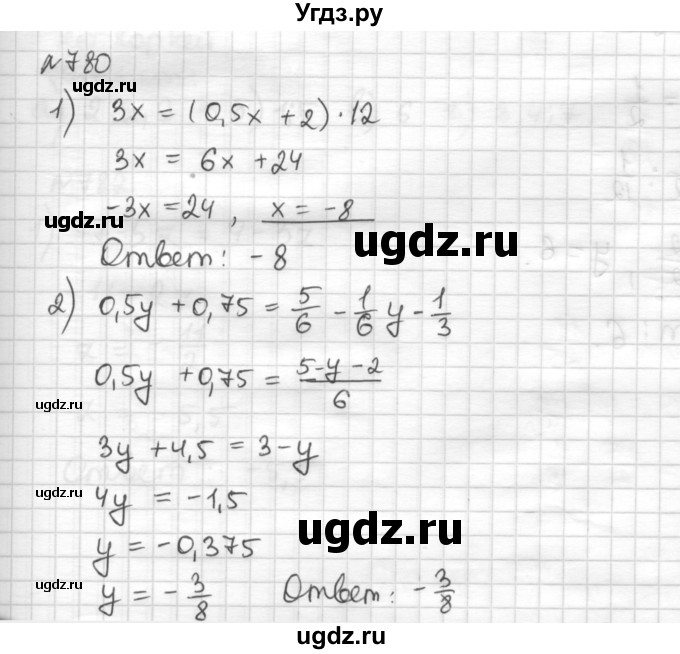 Угдз.ру
№780
ugdz.ru
1) 3x = (0,5x + 2) · 12
3x = 6x + 24
-3x = 24, x = -8
ugdz.ru
ugdz.ru
Ответ: -8
2) 0,5y + 0,75 = 5/6 - 1/6 y - 1/3
0,5y + 0,75 = (5-y-2)/6
ugdz.ru
3y + 4,5 = 3 - y
4y = -1,5
ugdz.ru
ugdz.ru
y = -0,375
y = -3/8 Ответ: -3/8
ugdz.ru
ugdz.ru